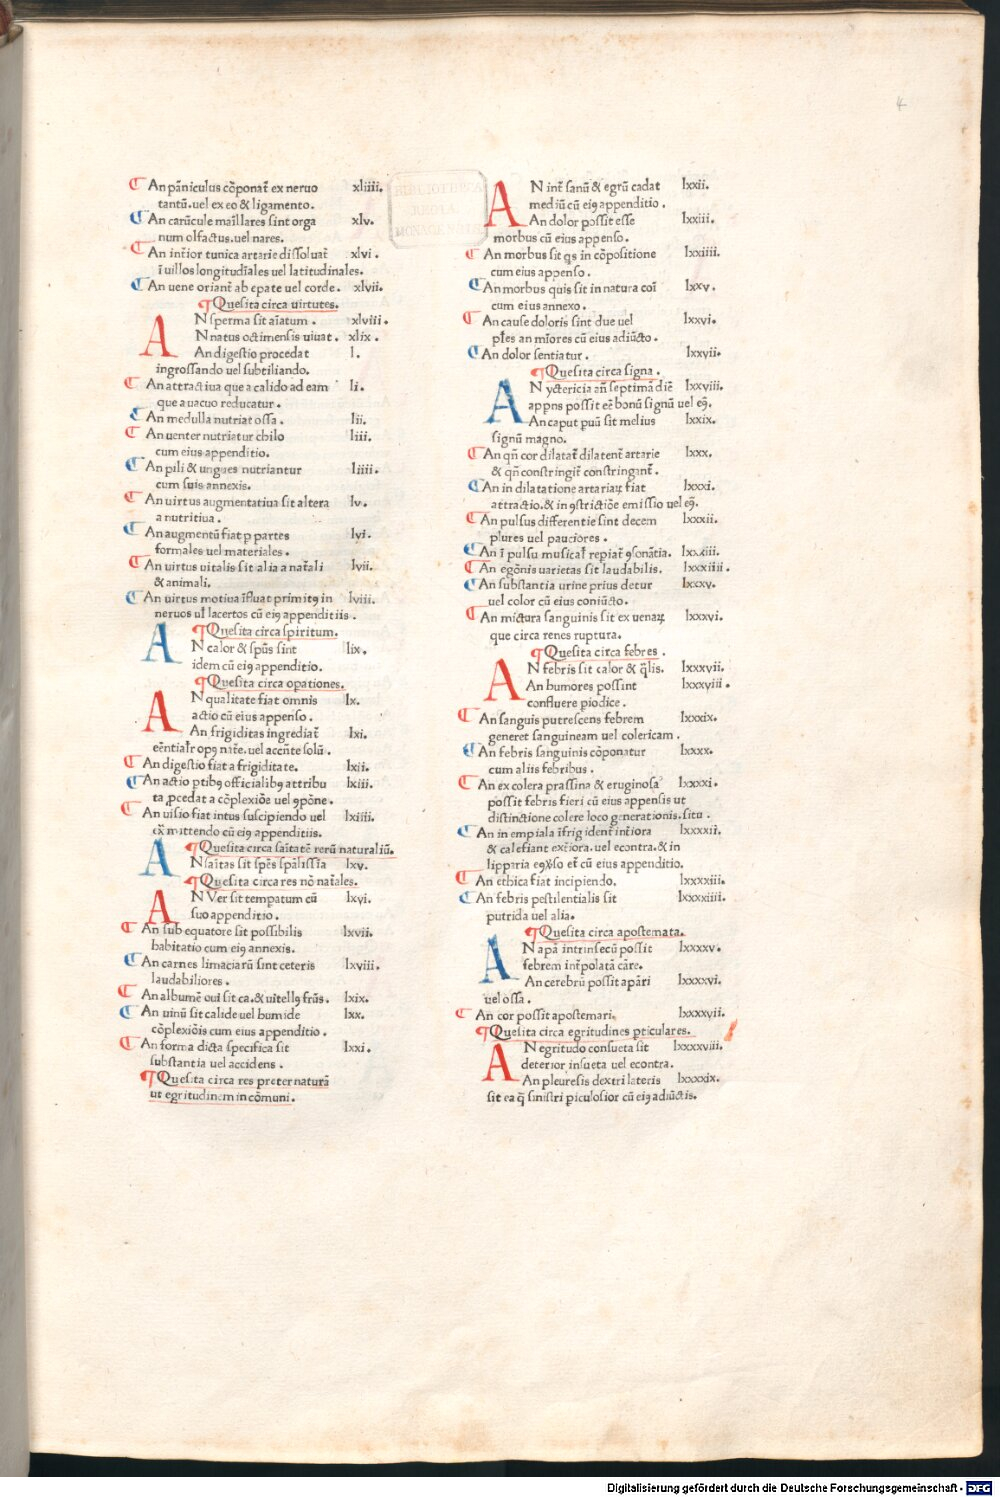 4
BIBLIOTHECA
REGIA
MONACENSIS
¶ An pāniculus cōponat̄ ex neruo xliiii.
tantū. uel ex eo & ligamento.
¶ An carūcule mail̄lares sint orga xlv.
num olfactus. uel nares.
¶ An int̄ior tunica artarie dissoluat̄ xlvi.
ī uillos longitudīales uel latitudinales.
¶ An uene oriant̄ ab epate uel corde. xlvii.
¶ Quesita circa uirtutes.
AN sperma sit aīatum. xlviii.
N natus octimensis uiuat. xlix.
An digestio procedat l.
ingrossando uel subtiliando.
¶ An attractiua que a calido ad eam li.
que a uacuo reducatur.
¶ An medulla nutriat ossa. lii.
¶ An uenter nutriatur chilo liii.
cum eius appenditio.
¶ An pili & ungues nutriantur liiii.
cum suis annexis.
¶ An uirtus augmentatiua sit altera lv.
a nutritiua.
¶ An augmentū fiat p partes lvi.
formales uel materiales.
¶ An uirtus uitalis sit alia a nat̄ali lvii.
& animali.
¶ An uirtus motiua īfluat primitꝰ in lviii.
neruos ul̄ lacertos cū eiꝰ appenditiis.
¶ Quesita circa spiritum.
AN calor & sp̄us sint lix.
idem cū eiꝰ appenditio.
¶ Quesita circa opationes.
AN qualitate fiat omnis lx.
actio cū eius appenso.
An frigiditas ingrediat̄ lxi.
eēntialr̄ opꝰ nat̄e. uel accn̄te solū.
¶ An digestio fiat a frigiditate. lxii.
¶ An actio ptibꝰ officialibꝰ attribu lxiii.
ta ꝓcedat a cōplexiōe uel ꝯpōne.
¶ An uisio fiat intus suscipiendo uel lxiiii.
ex̄ mittendo cū eiꝰ appenditiis.
¶ Quesita circa saītatē rerū naturaliū.
AN saītas sit sp̄es sp̄alissīa lxv.
¶ Quesita circa res nō nat̄ales.
AN Ver sit tempatum cū lxvi.
suo appenditio.
¶ An sub equatore sit possibilis lxvii.
habitatio cum eiꝰ annexis.
¶ An carnes limaciarū sint ceteris lxviii.
laudabiliores.
¶ An albumē oui sit ca. & uitellꝰ fr̄us. lxix.
¶ An uinū sit calide uel humide lxx.
cōplexiōis cum eius appenditio.
¶ An forma dicta specifica sit lxxi.
substantia uel accidens.
¶ Quesita circa res preter naturā
ut egritudinem in cōmuni.
AN int̄ sanū & egrū cadat lxxii.
mediū cū eiꝰ appenditio.
An dolor possit esse lxxiii.
morbus cū eius appenso.
¶ An morbus sit qs in cōpositione lxxiiii.
cum eius appenso.
¶ An morbus quis sit in natura coī lxxv.
cum eius annexo.
¶ An cause doloris sint due uel lxxvi.
pl̄es an mīores cū eius adiūcto.
¶ An dolor sentiatur. lxxvii.
¶ Quesita circa signa.
AN yctericia an̄ septimā diē lxxviii.
appn̄s possit eē bonū signū uel eꝯ.
An caput puū sit melius lxxix.
signū magno.
¶ An qn̄ cor dilatat̄ dilatent̄ artarie lxxx.
& qn̄ constringit̄ constringant̄.
¶ An in dilatatione artariaꝝ fiat lxxxi.
attractio. & in ꝯstrictiōe emissio uel eꝯ.
¶ An pulsus differentie sint decem lxxxii.
plures uel pauciores.
¶ An ī pulsu musicalr̄ repiat̄ ꝯsonātia. lxxxiii.
¶ An egōnis uarietas sit laudabilis. lxxxiiii.
¶ An substantia urine prius detur lxxxv.
uel color cū eius coniūcto.
¶ An mictura sanguinis sit ex uenaꝝ lxxxvi.
que circa renes ruptura.
¶ Quesita circa febres.
AN febris sit calor & q̄lis. lxxxvii.
An humores possint lxxxviii.
confluere piodice.
¶ An sanguis putrescens febrem lxxxix.
generet sanguineam uel colericam.
¶ An febris sanguinis cōponatur lxxxx.
cum aliis febribus.
¶ An ex colera prassina & eruginosa lxxxxi.
possit febris fieri cū eius appensis ut
distinctione colere loco generationis. situ.
¶ An in empiala īfrigident̄ int̄iora lxxxxii.
& calefiant ext̄iora. uel econtra. & in
lipparia eꝯūso et̄ cū eius appenditio.
¶ An ethica fiat incipiendo. lxxxxiii.
¶ An febris pestilentialis sit lxxxxiiii.
putrida uel alia.
¶ Quesita circa apostemata.
AN apā intrinsecū possit lxxxxv.
febrem int̄polatā cāre.
An cerebrū possit apāri lxxxxvi.
uel ossa.
¶ An cor possit apostemari. lxxxxvii.
¶ Quesita circa egritudines pticulares.
AN egritudo consueta sit lxxxxviii.
deterior insueta uel econtra.
An pleuresis dextri lateris lxxxxix.
sit ea q̄ sinistri piculosior cū eiꝰ adiūctis.
Digitalisierung gefördert durch die Deutsche Forschungsgemeinschaft - DFG